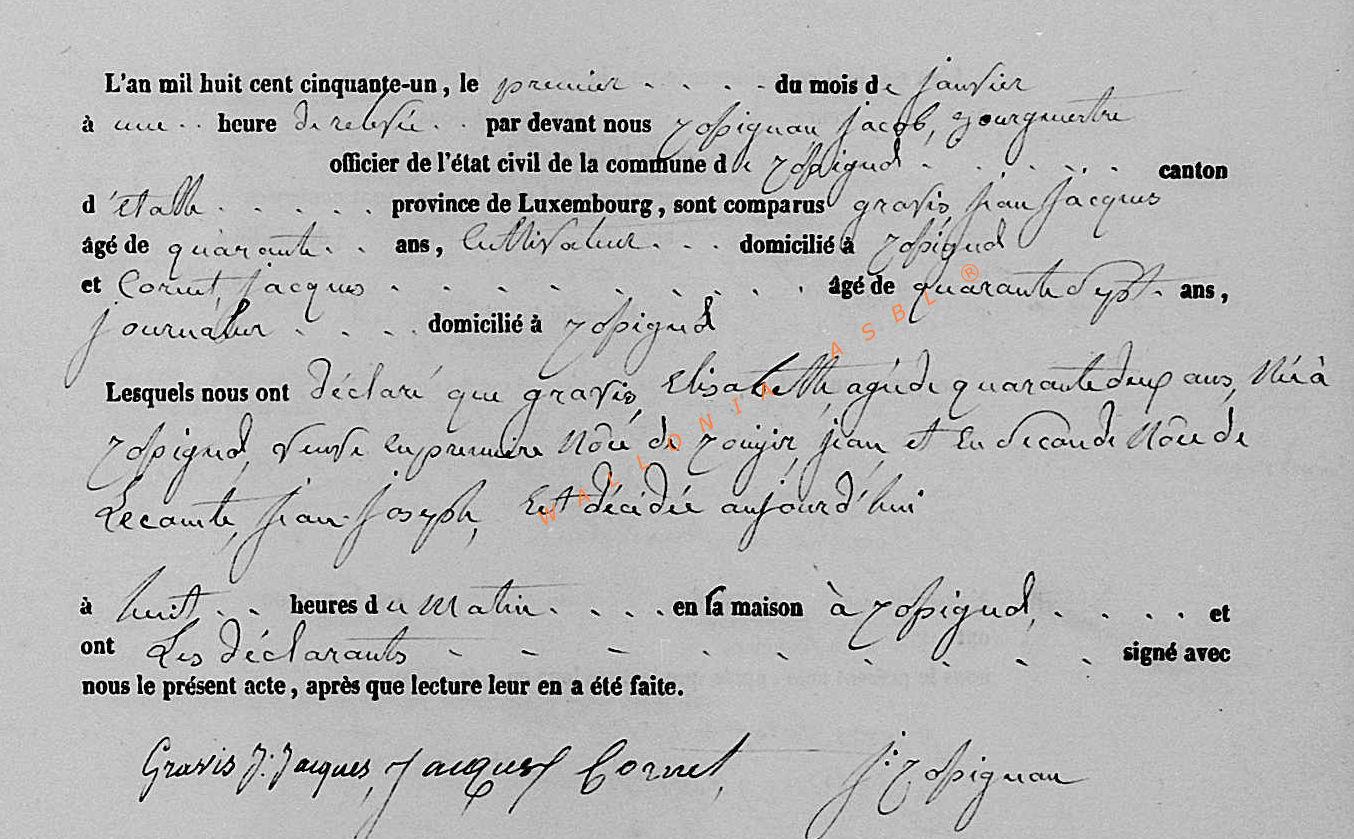 L'an mil huit cent cinquante-un, le premier du mois de janvier
à une heure de relevée par devant nous rossignon jacob, bourgmestre
officier de l'état civil de la commune de rossignol canton
d'étalle province de Luxembourg, sont comparus gravis jean jacques
âgé de quarante ans, Cultivateur domicilié à rossignol
et Cornet, jacques âgé de quarante Sept ans,
journalier domicilié à rossignol
Lesquels nous ont déclaré que gravis, Elisabeth, agée de quarante deux ans, Née à
rossignol, veuve en première Nôce de jean, et En Seconde Nôce de
Lecomte, jean-joseph, Est décédée aujourd'hui
à huit heures du Matin en sa maison à rossignol, et
ont Les déclarants signé avec
nous le présent acte, après que lecture leur en a été faite.
Gravis J. Jacques, Jacques Cornet, J. rossignon
WALLONIA ASBL ®